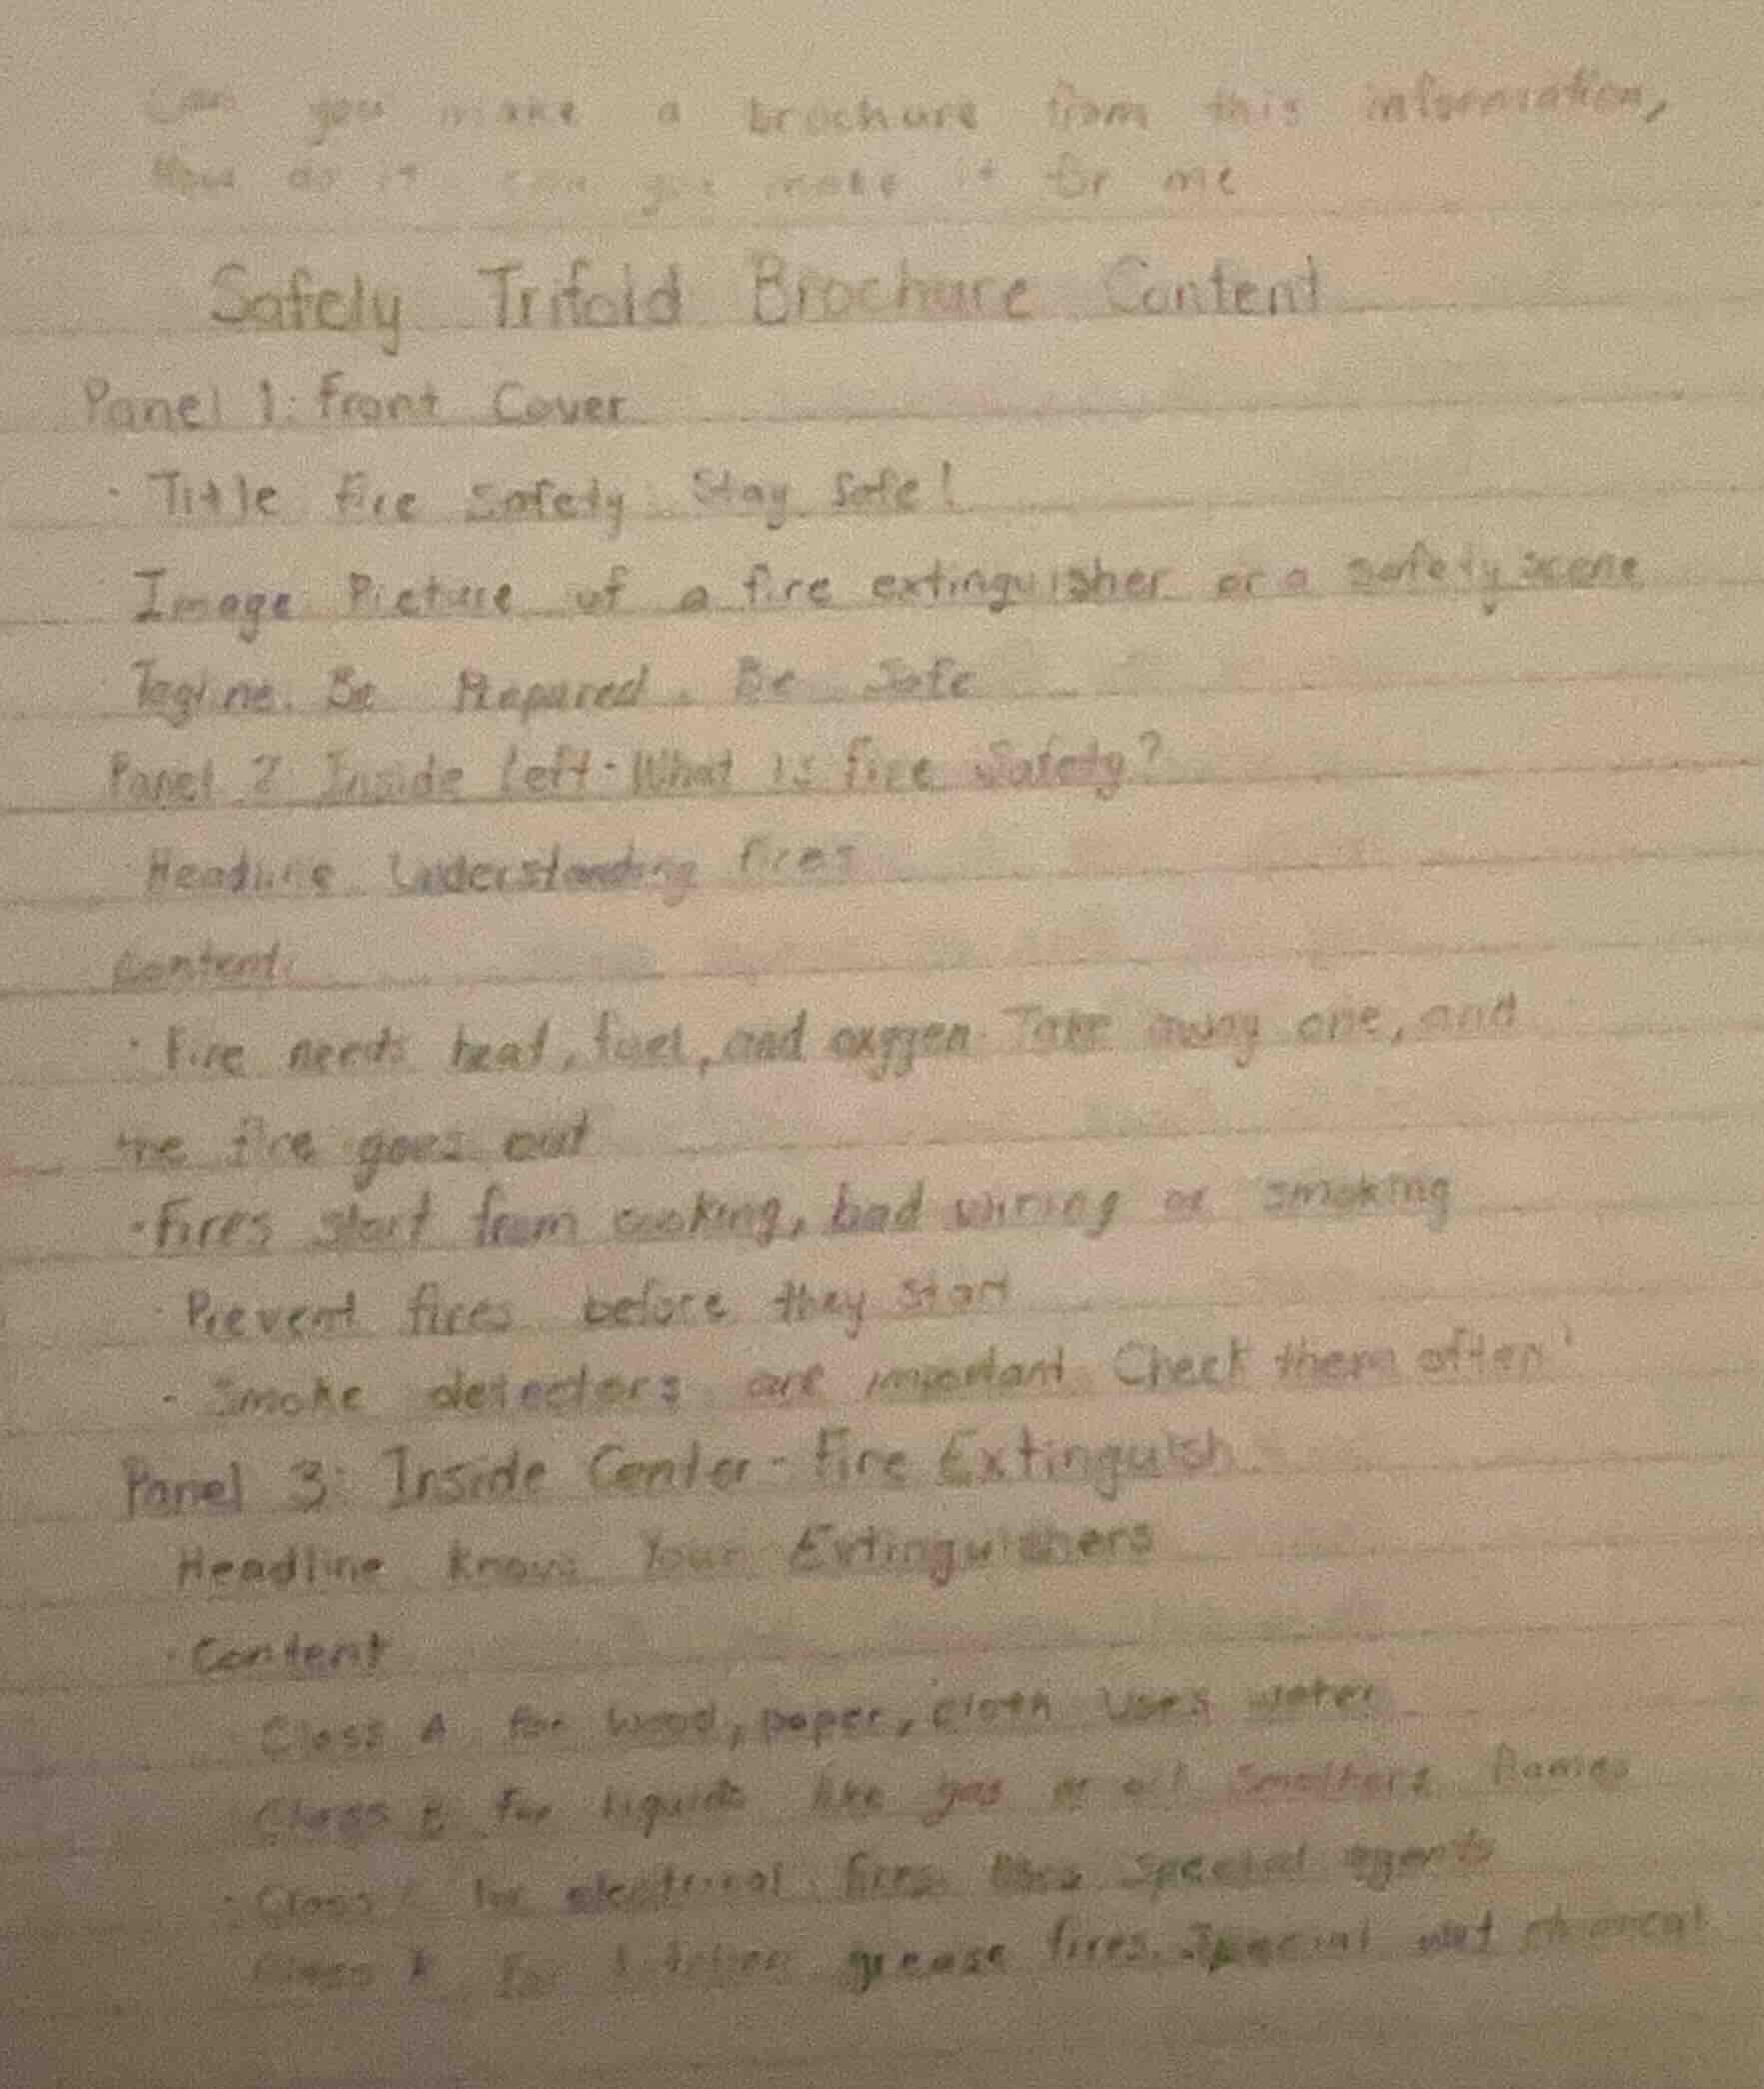 Can you make a brochure from this information,
How do it can you make it for me
Safely Trifold Brochure Content
Panel 1: Front Cover
· Title Fire Safety: Stay Safe!
Image Picture of a fire extinguisher or a safety scene
Tagline. Be Prepared. Be Safe
Panel 2 Inside Left - What is fire Safety?
Headline Understanding fires
Content:
· Fire needs heat, fuel, and oxygen. Take away one, and
the fire goes out
· Fires start from cooking, bad wiring or smoking
· Prevent fires before they start
· Smoke detectors are important Check them often!
Panel 3: Inside Center - Fire Extinguish
Headline Know Your Extinguishers
· Content
Class A for wood, paper, cloth Uses water
Class B For liquids like gas or oil Smothers flames
· Class C for electrical fires Uses special agents
Class K For kitchen grease fires. Special wet chemical